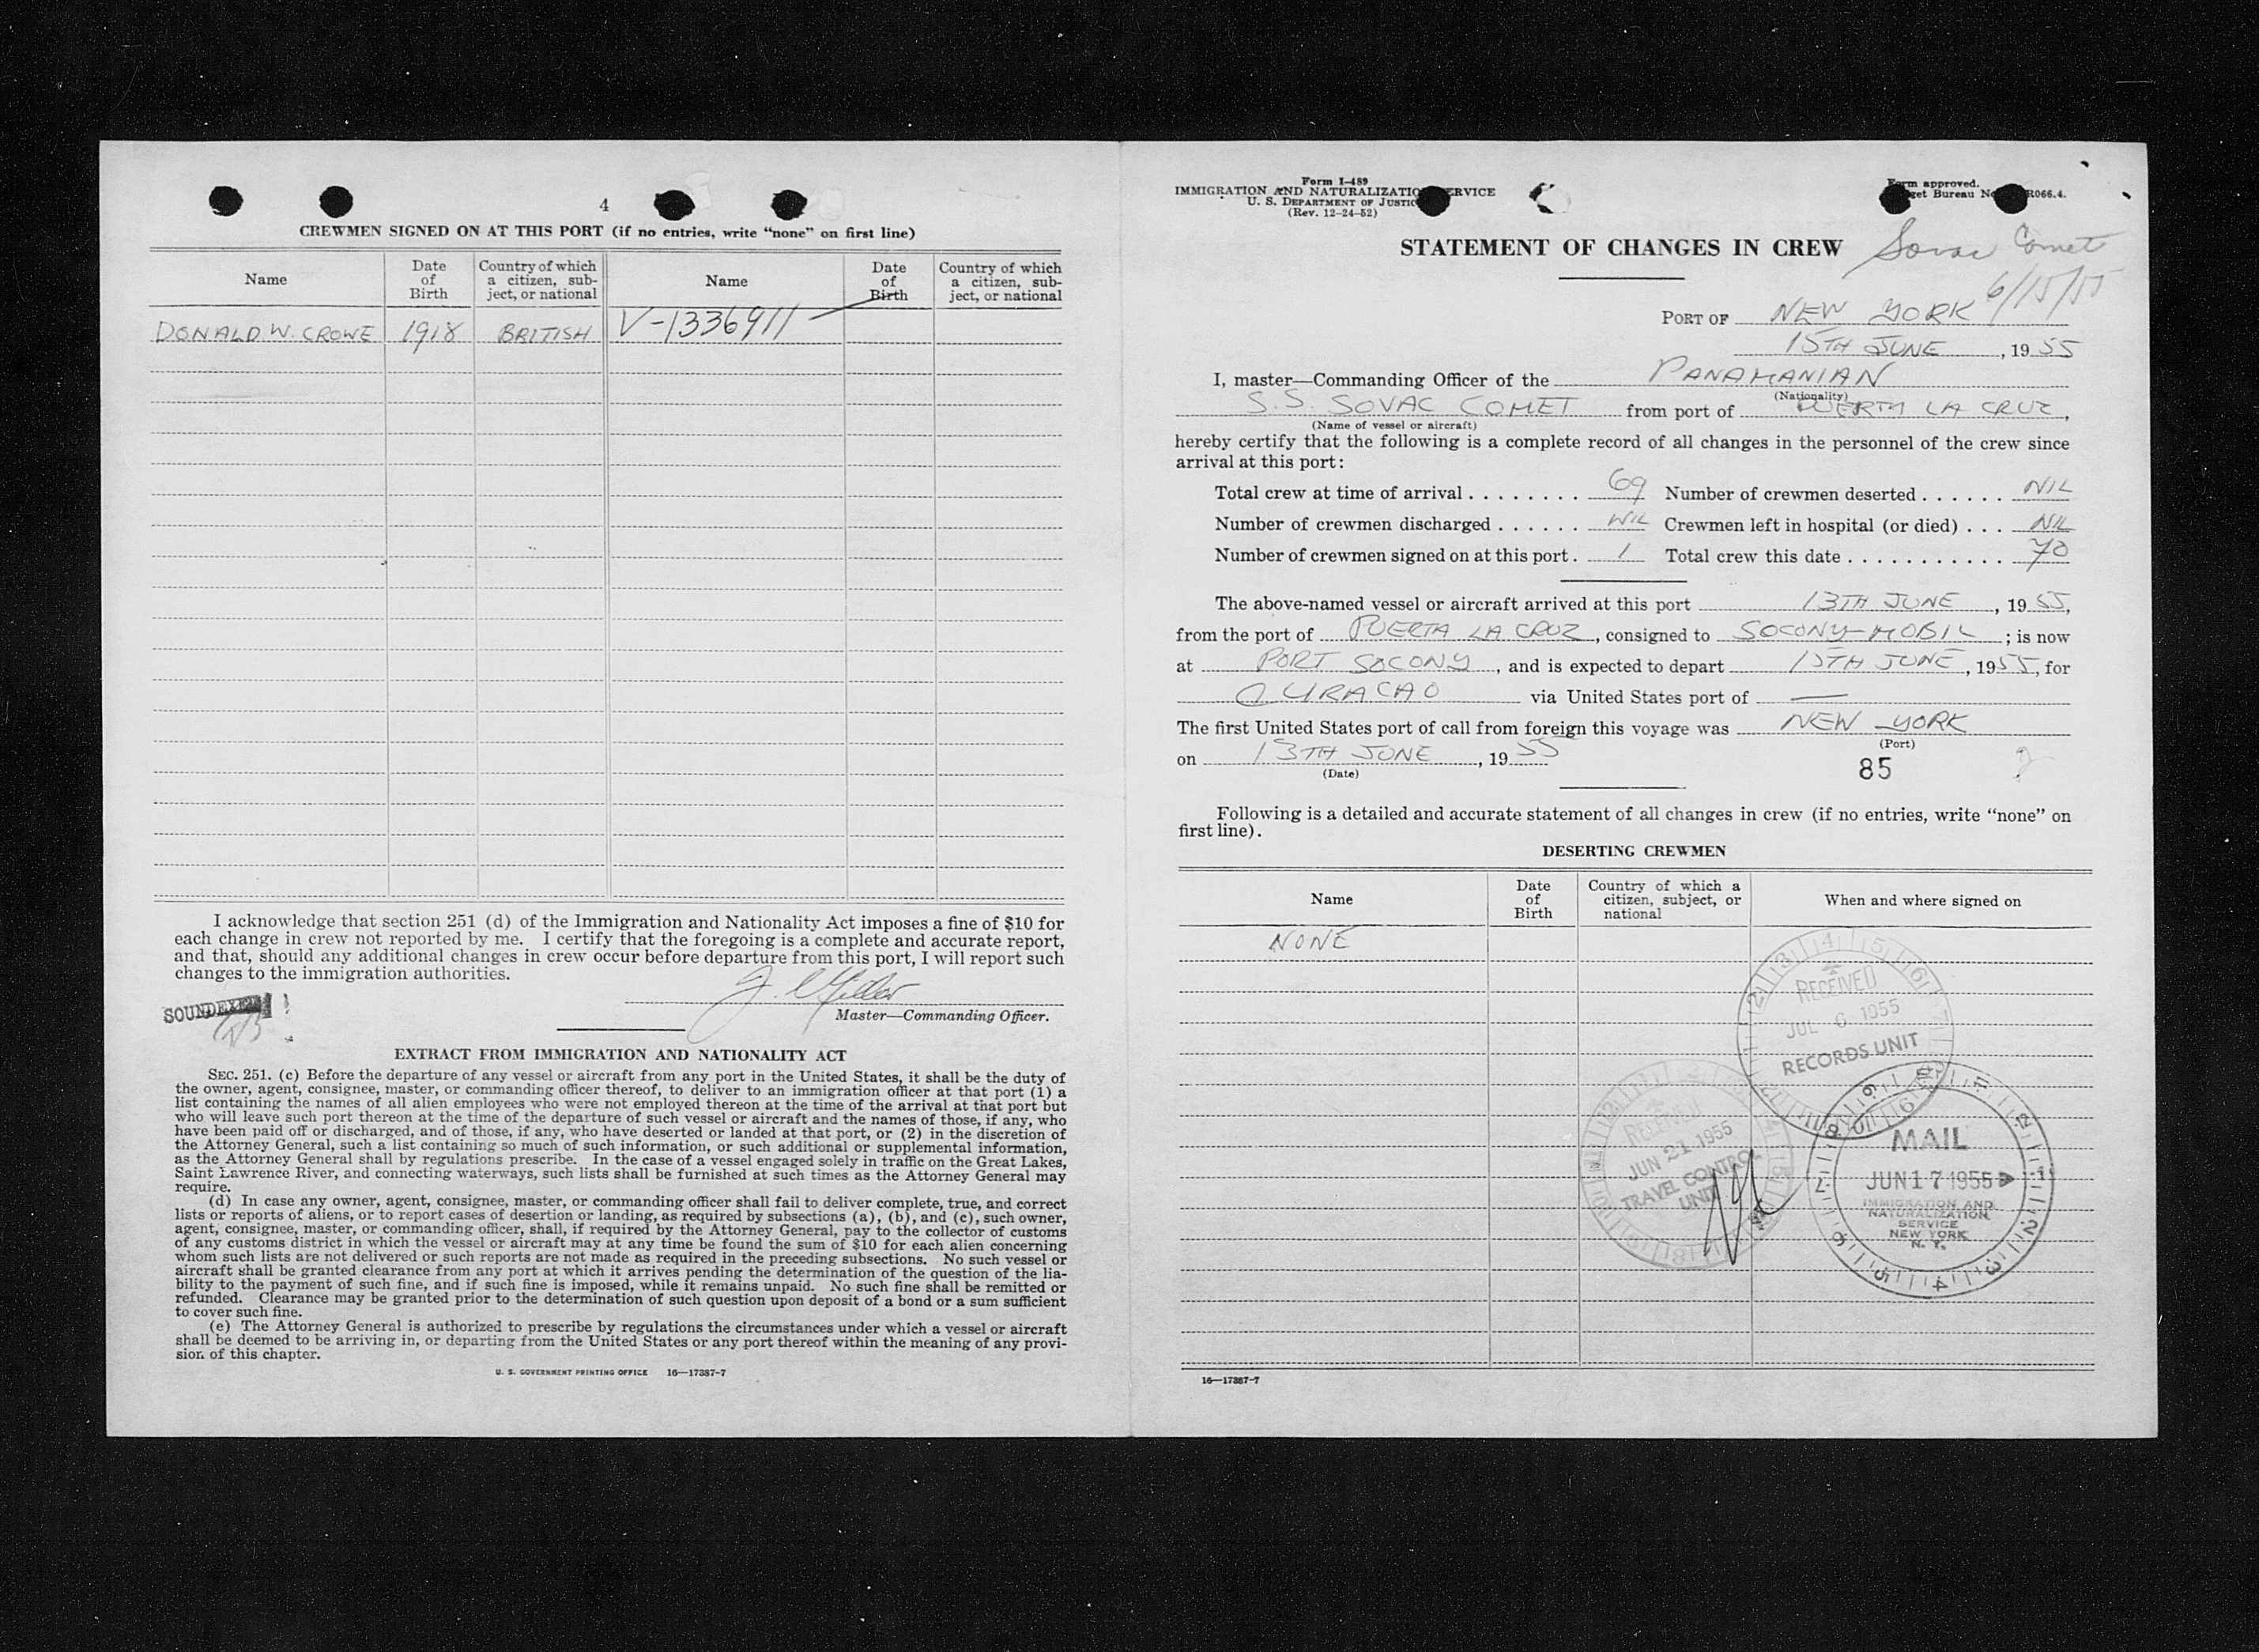 4
CREWMEN SIGNED ON AT THIS PORT (if no entries, write “none” on first line)
Name
Date of Birth
Country of which a citizen, sub-ject, or national
Name
Date of Birth
Country of which a citizen, sub-ject, or national
DONALD W. CROWE 1918 BRITISH V-1336911
I acknowledge that section 251 (d) of the Immigration and Nationality Act imposes a fine of $10 for
each change in crew not reported by me. I certify that the foregoing is a complete and accurate report,
and that, should any additional changes in crew occur before departure from this port, I will report such
changes to the immigration authorities.
SOUNDEXED
Master—Commanding Officer.
EXTRACT FROM IMMIGRATION AND NATIONALITY ACT
SEC. 251. (c) Before the departure of any vessel or aircraft from any port in the United States, it shall be the duty of
the owner, agent, consignee, master, or commanding officer thereof, to deliver to an immigration officer at that port (1) a
list containing the names of all alien employees who were not employed thereon at the time of the arrival at that port but
who will leave such port thereon at the time of the departure of such vessel or aircraft and the names of those, if any, who
have been paid off or discharged, and of those, if any, who have deserted or landed at that port, or (2) in the discretion of
the Attorney General, such a list containing so much of such information, or such additional or supplemental information,
as the Attorney General shall by regulations prescribe. In the case of a vessel engaged solely in traffic on the Great Lakes,
Saint Lawrence River, and connecting waterways, such lists shall be furnished at such times as the Attorney General may
require.
(d) In case any owner, agent, consignee, master, or commanding officer shall fail to deliver complete, true, and correct
lists or reports of aliens, or to report cases of desertion or landing, as required by subsections (a), (b), and (c), such owner,
agent, consignee, master, or commanding officer, shall, if required by the Attorney General, pay to the collector of customs
of any customs district in which the vessel or aircraft may at any time be found the sum of $10 for each alien concerning
whom such lists are not delivered or such reports are not made as required in the preceding subsections. No such vessel or
aircraft shall be granted clearance from any port at which it arrives pending the determination of the question of the lia-
bility to the payment of such fine, and if such fine is imposed, while it remains unpaid. No such fine shall be remitted or
refunded. Clearance may be granted prior to the determination of such question upon deposit of a bond or a sum sufficient
to cover such fine.
(e) The Attorney General is authorized to prescribe by regulations the circumstances under which a vessel or aircraft
shall be deemed to be arriving in, or departing from the United States or any port thereof within the meaning of any provi-
sion of this chapter.
U. S. GOVERNMENT PRINTING OFFICE 16—17387-7
Form I-489
IMMIGRATION AND NATURALIZATION SERVICE
U. S. DEPARTMENT OF JUSTICE
(Rev. 12-24-52)
Form approved.
Budget Bureau No. R066.4.
STATEMENT OF CHANGES IN CREW
Sovac Comet
6/15/55
PORT OF NEW YORK
15TH JUNE, 1955
I, master—Commanding Officer of the PANAMANIAN
(Nationality)
S.S. SOVAC COMET from port of PUERTA LA CRUZ,
(Name of vessel or aircraft)
hereby certify that the following is a complete record of all changes in the personnel of the crew since
arrival at this port:
Total crew at time of arrival . . . . . . . . 69 Number of crewmen deserted . . . . . . NIL
Number of crewmen discharged . . . . . . NIL Crewmen left in hospital (or died) . . . NIL
Number of crewmen signed on at this port . 1 Total crew this date . . . . . . . . . . . 70
The above-named vessel or aircraft arrived at this port 13TH JUNE, 1955,
from the port of PUERTA LA CRUZ, consigned to SOCONY-MOBIL; is now
at PORT SOCONY, and is expected to depart 15TH JUNE, 1955, for
CURACAO via United States port of —
The first United States port of call from foreign this voyage was NEW YORK
(Port)
on 13TH JUNE, 1955
(Date)
85 2
Following is a detailed and accurate statement of all changes in crew (if no entries, write “none” on
first line).
DESERTING CREWMEN
Name
Date of Birth
Country of which a citizen, subject, or national
When and where signed on
NONE
RECEIVED
JUL 6 1955
RECORDS UNIT
JUN 21 1955
TRAVEL CONTROL
UNIT
MAIL
JUN 17 1955
IMMIGRATION AND
NATURALIZATION
SERVICE
NEW YORK
N. Y.
16—17387-7